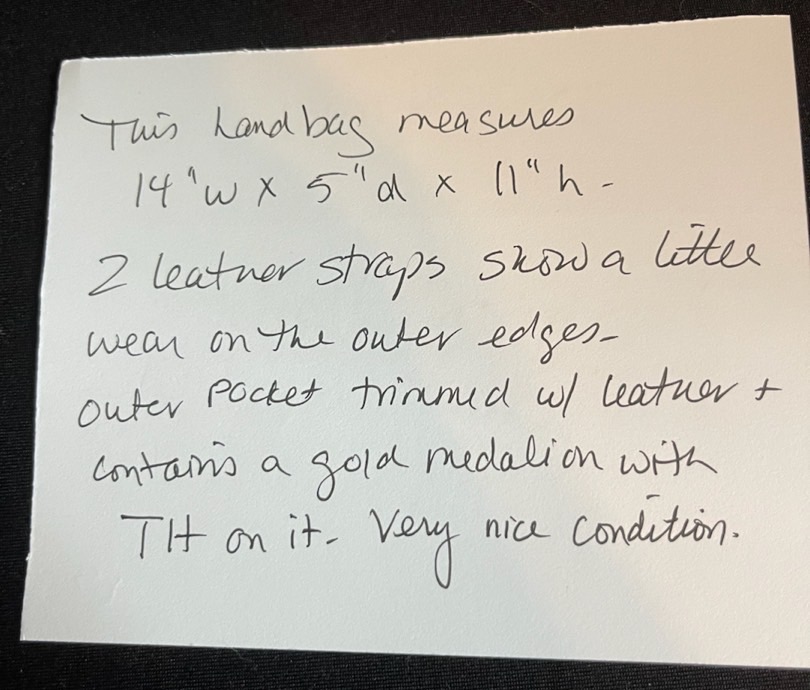 This handbag measures
14"w x 5"d x 11"h -
2 leather straps show a little
wear on the outer edges-
outer pocket trimmed w/ leather +
contains a gold medalion with
TH on it- Very nice condition.